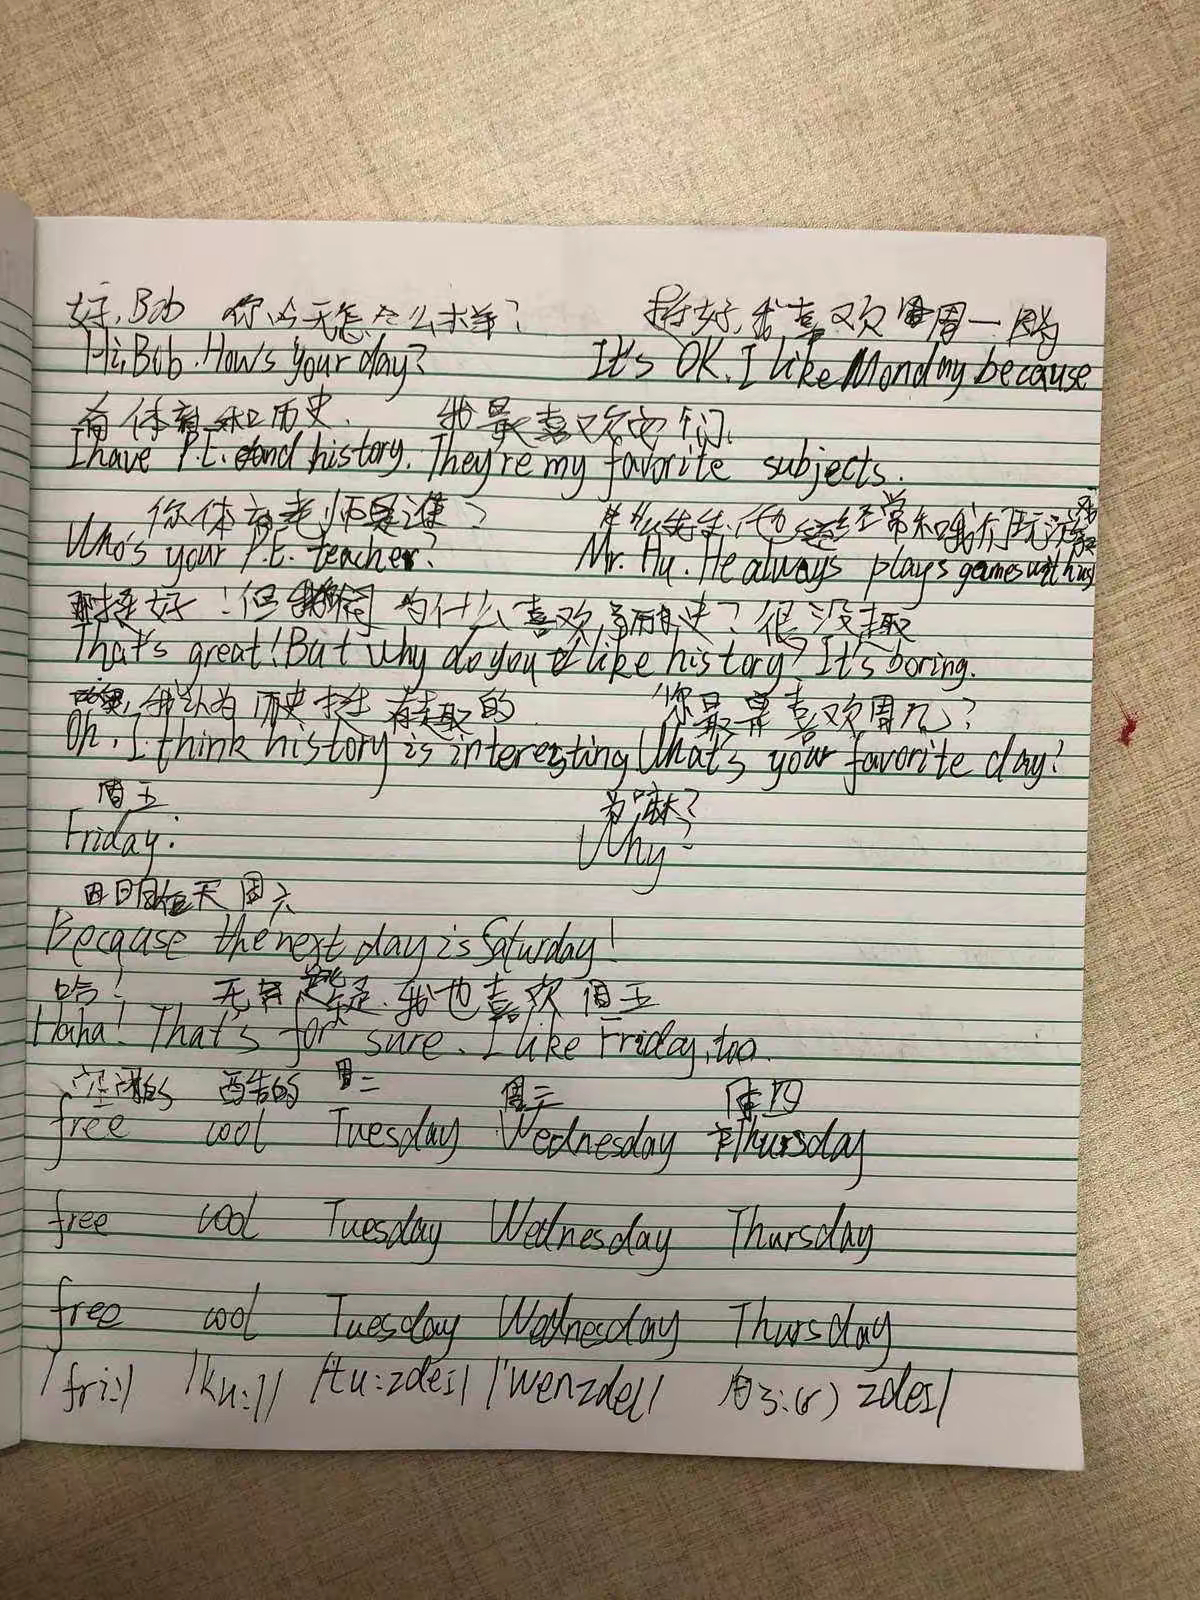 好,Bob 你今天怎么样? 挺好,我喜欢周一因为
Hi,Bob. How's your day? It's OK. I like Monday because
有体育和历史. 我最喜欢它们.
I have P.E. and history. They're my favorite subjects.
你体育老师是谁?
Who's your P.E. teacher? Mr. Hu. He always plays games with us
挺好!但 为什么喜欢历史?很没趣
That's great! But why do you like history? It's boring.
我认为历史挺有趣的. 你最喜欢周几?
Oh, I think history is interesting What's your favorite day?
周五 为嘛?
Friday. Why?
因明天周六
Because the next day is Saturday!
哈! 无 疑.我也喜欢周五
Haha! That's for sure. I like Friday, too.
空闲的 酷的 周二 周三 周四
free cool Tuesday Wednesday Thursday
free cool Tuesday Wednesday Thursday
free cool Tuesday Wednesday Thursday
/fri:/ /ku:l/ /tu:zdeɪ/ /'wenzdeɪ/ zdeɪ/